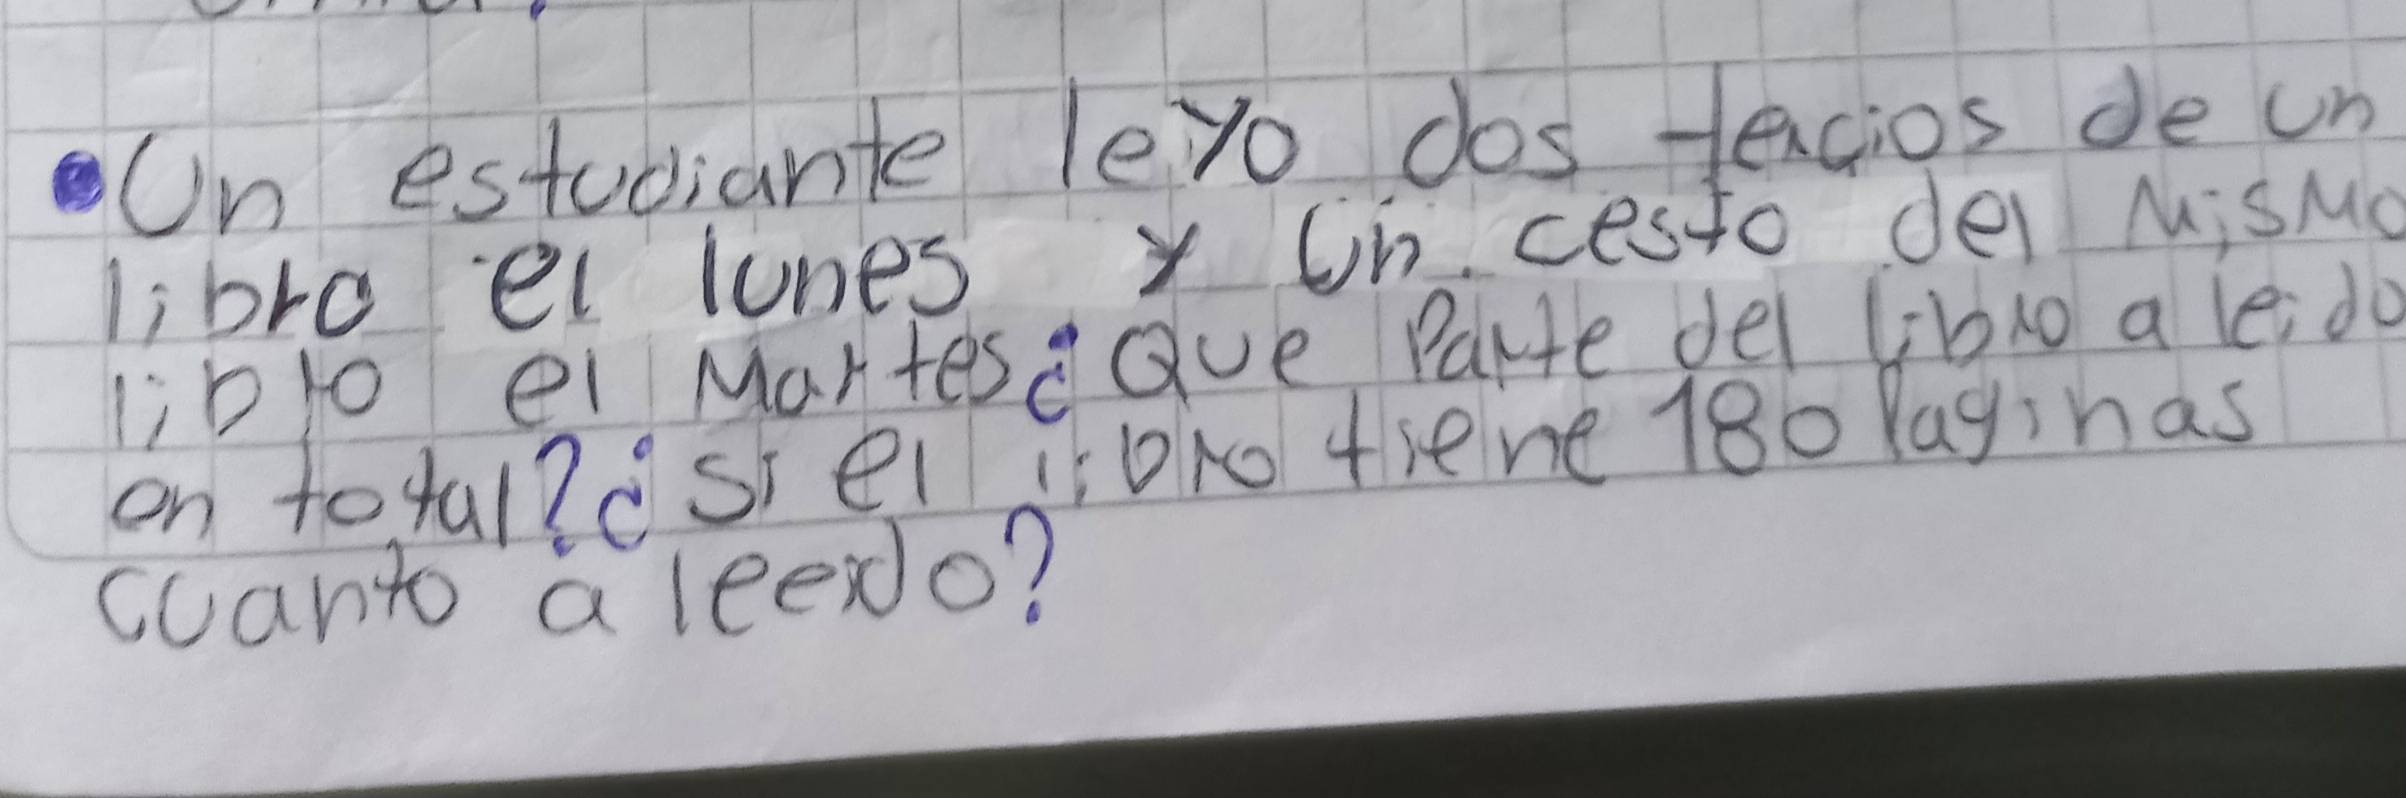 Un estudiante leyo dos tercios de un
libro el lunes y un cesto del Mismo
libro el Martes ¿Que Parte del libro a leido
en total? ¿si el libro tiene 180 Paginas
cuanto a leeido?